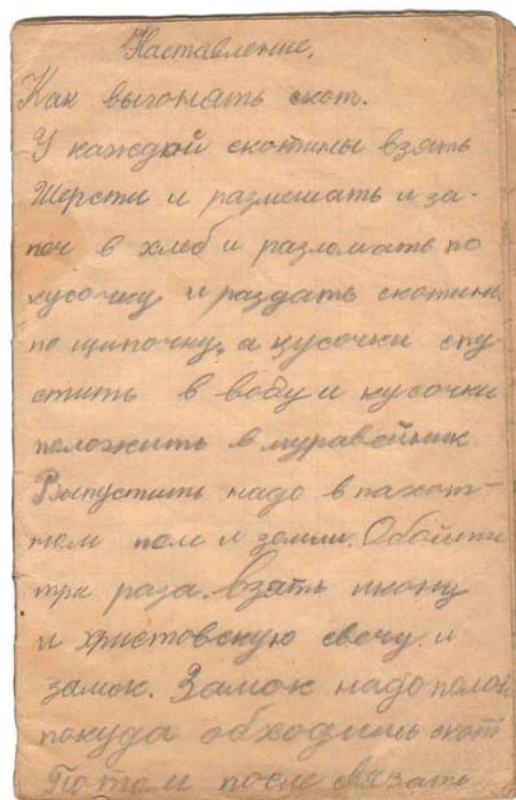 Наставление.
Как выгонять скот.
У каждой скотины взять
Шерсти и размешать и за-
печ в хлеб и разломать по
кусочку и раздать скотине
по щипочку, а кусочки спу-
стить в воду и кусочки
положить в муравейник
Выпустить надо в пахот-
ном поле и земли. Обойти
три раза. Взять икону
и христовскую свечу и
замок. Замок надо полой
покуда обходишь скот
Потом и после связать